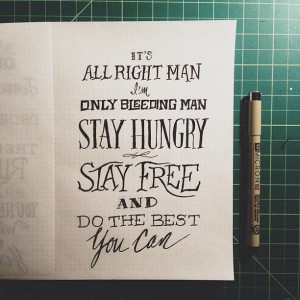 IT'S
ALL RIGHT MAN
I'm
ONLY BLEEDING MAN
STAY HUNGRY
STAY FREE
AND
DO THE BEST
You Can
MICRON